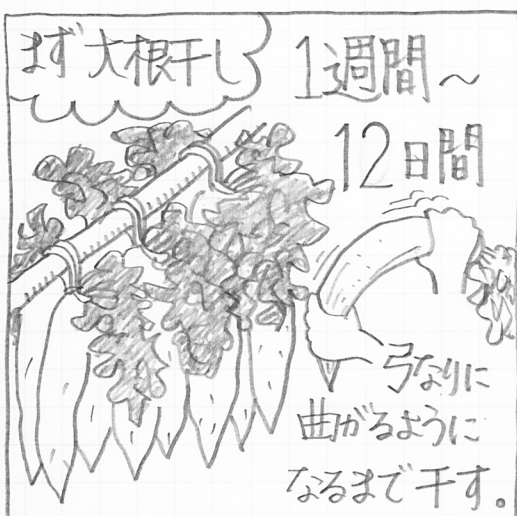 まず大根干し
1週間～
12日間
弓なりに
曲がるように
なるまで干す。